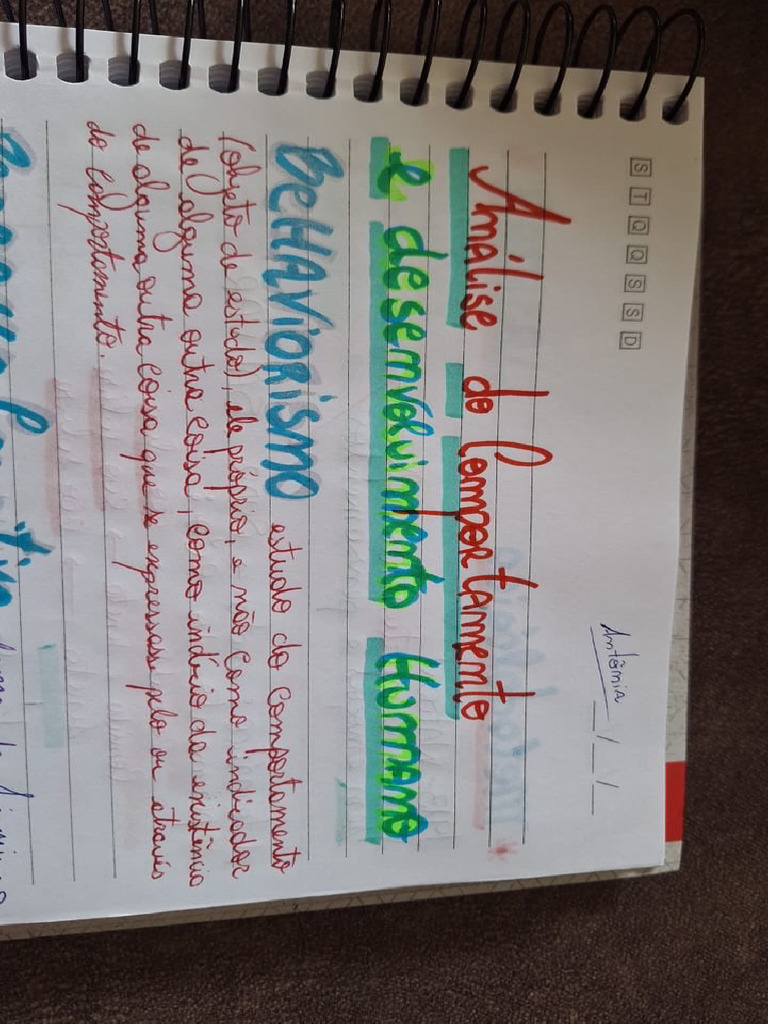 S T Q Q S S D
Antônia __/__/__
Análise do Comportamento
e desemvolvimento Humano
BeHAViorismo estudo do comportamento
(objeto de estudo), ele próprio, e não como indicador
de alguma outra coisa, como indício da existência
de alguma outra coisa que se expressasse pelo ou através
do comportamento.